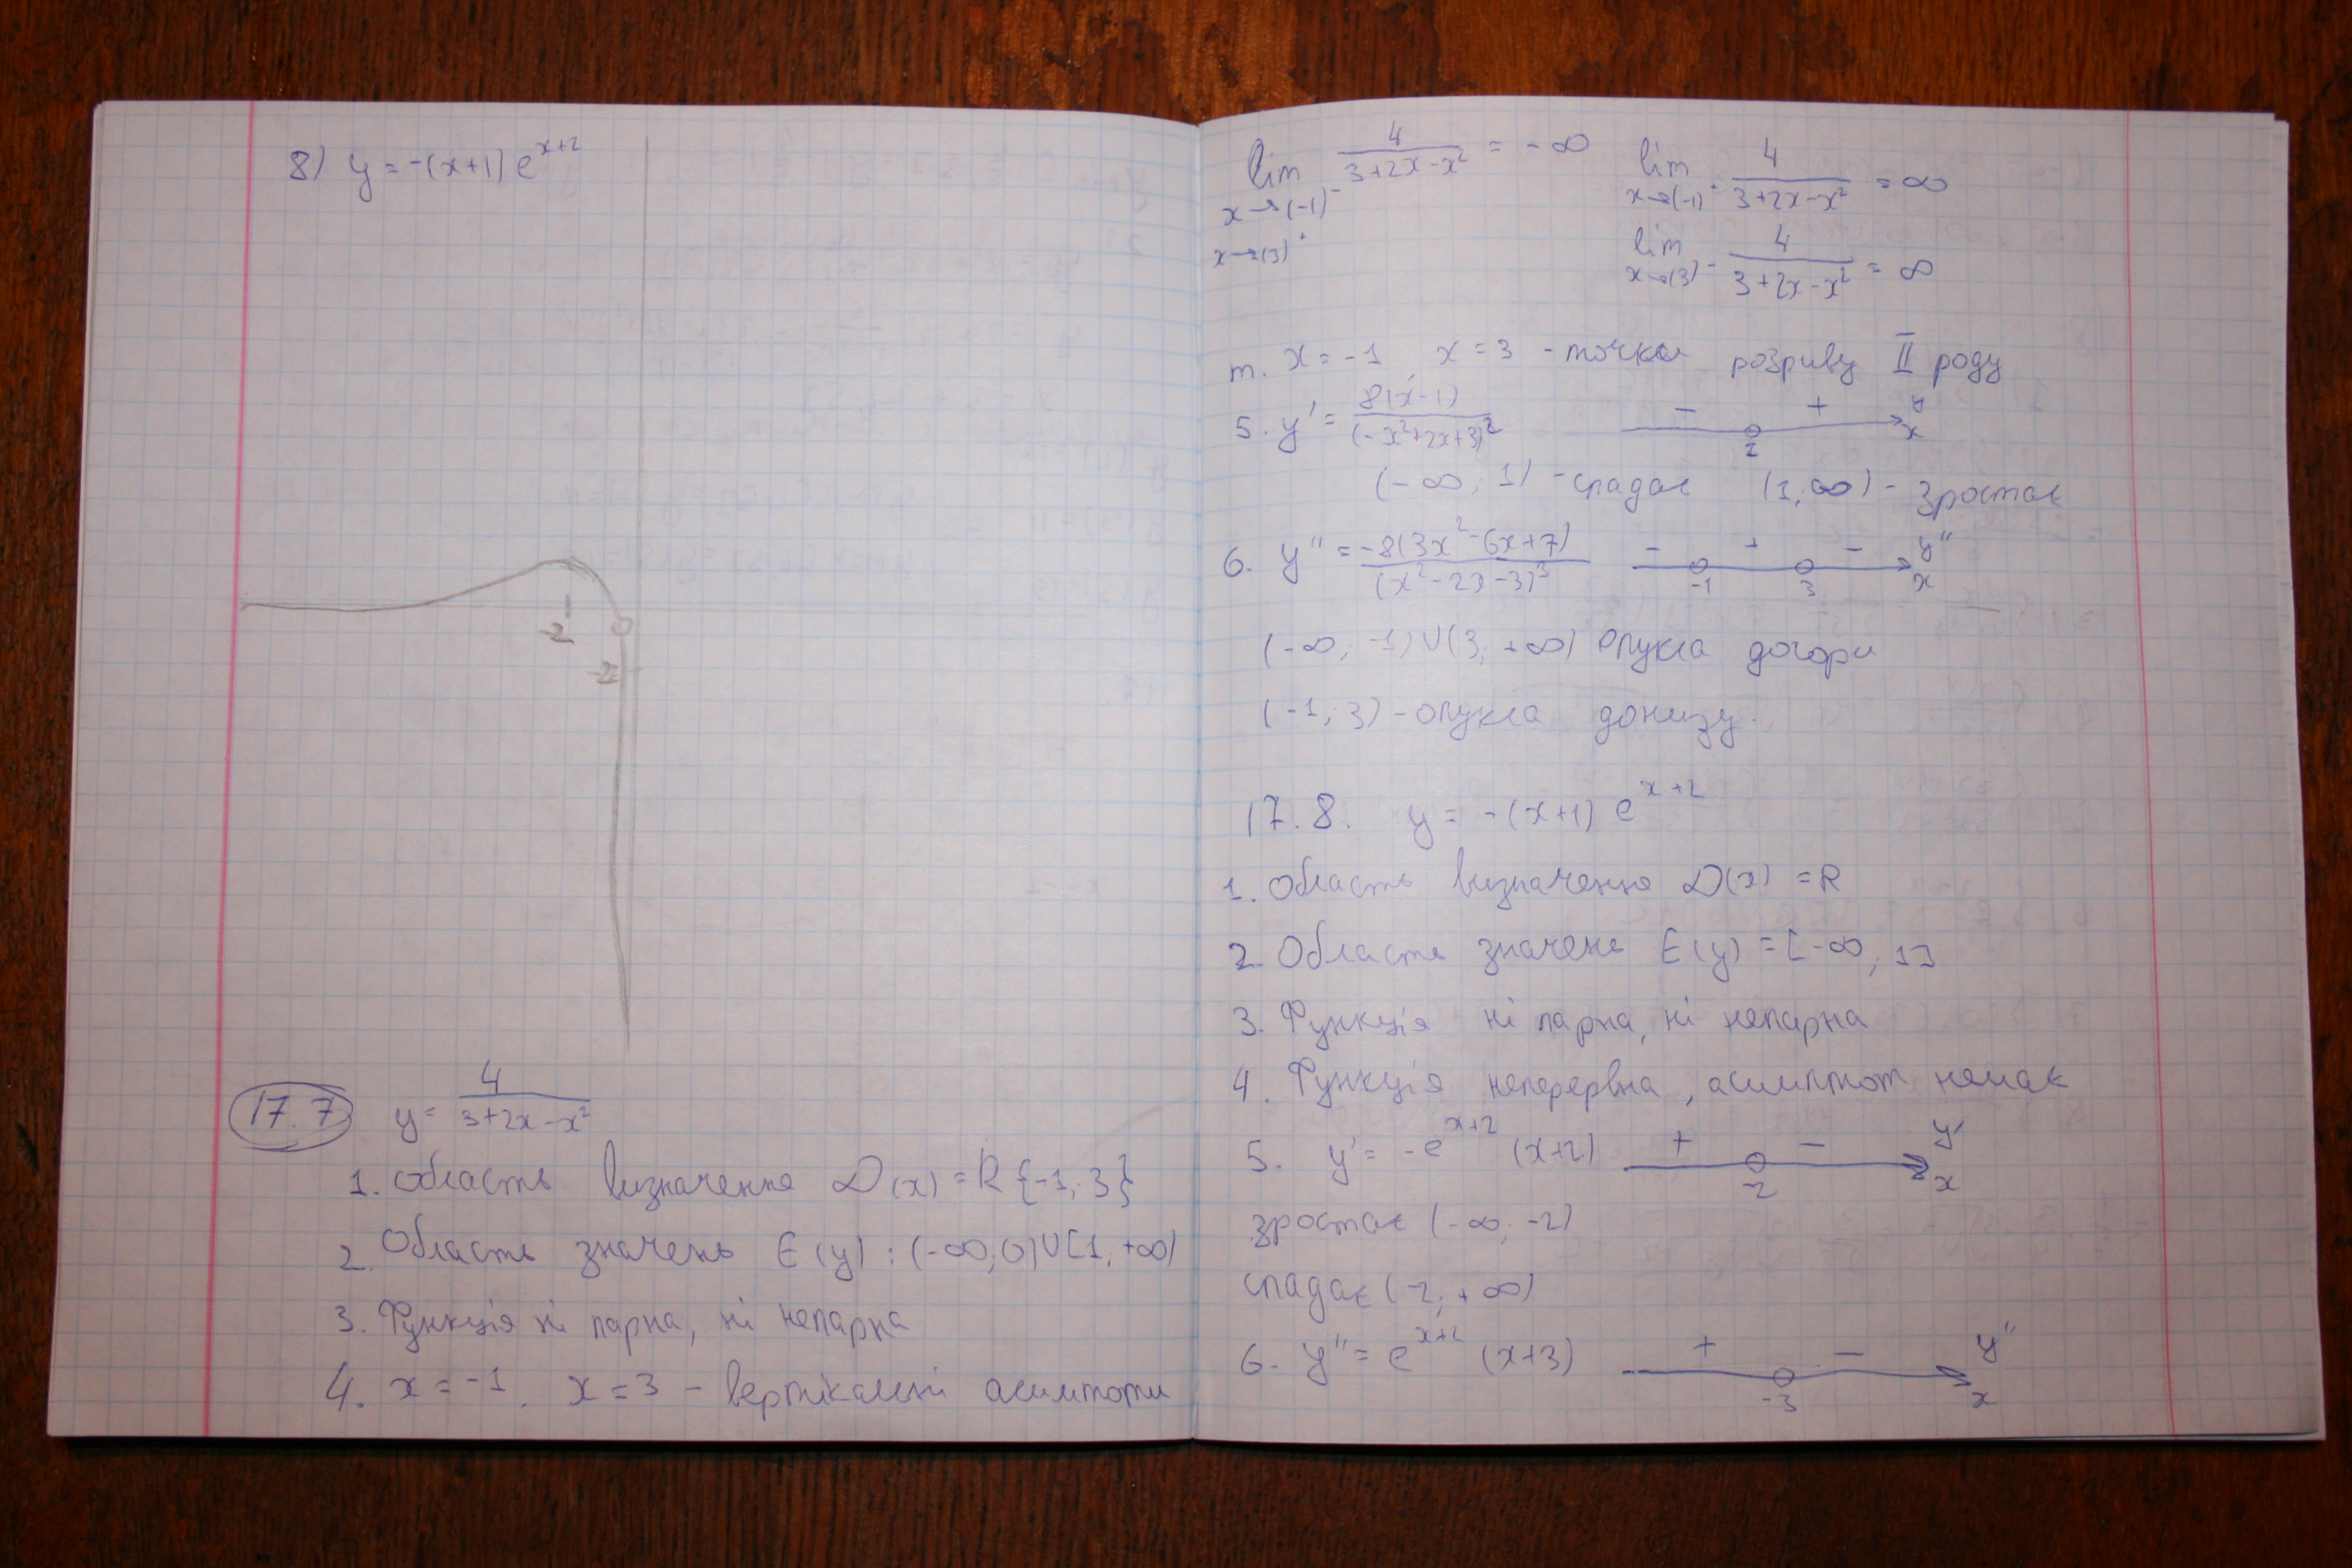 8) y = -(x+1) e^{x+2}
-2
-1
17.7 y = 4/(3+2x-x²)
1. Область визначення D(x) = R {-1; 3}
2. Область значень E(y): (-∞; 0) ∪ [1, +∞)
3. Функція ні парна, ні непарна
4. x = -1, x = 3 - вертикальні асимптоти
lim x→(-1)⁻ x→(3)⁺ 4/(3+2x-x²) = -∞ lim x→(-1)⁺ 4/(3+2x-x²) = ∞
lim x→(3)⁻ 4/(3+2x-x²) = ∞
т. x = -1, x = 3 - точки розриву II роду
5. y' = 8(x-1)/(-x²+2x+3)² - + y' x
(-∞; 1) - спадає (1, ∞) - зростає
6. y'' = -8(3x²-6x+7)/(x²-2x-3)³ - + - -1 3 y'' x
(-∞, -1) ∪ (3; +∞) опукла догори
(-1; 3) - опукла донизу.
17.8. y = -(x+1) e^{x+2}
1. Область визначення D(x) = R
2. Область значень E(y) = [-∞; 1]
3. Функція ні парна, ні непарна
4. Функція неперервна, асимптот немає
5. y' = -e^{x+2} (x+2) + - -2 y' x
зростає (-∞; -2)
спадає (-2; +∞)
6. y'' = e^{x+2} (x+3) + - -3 y'' x